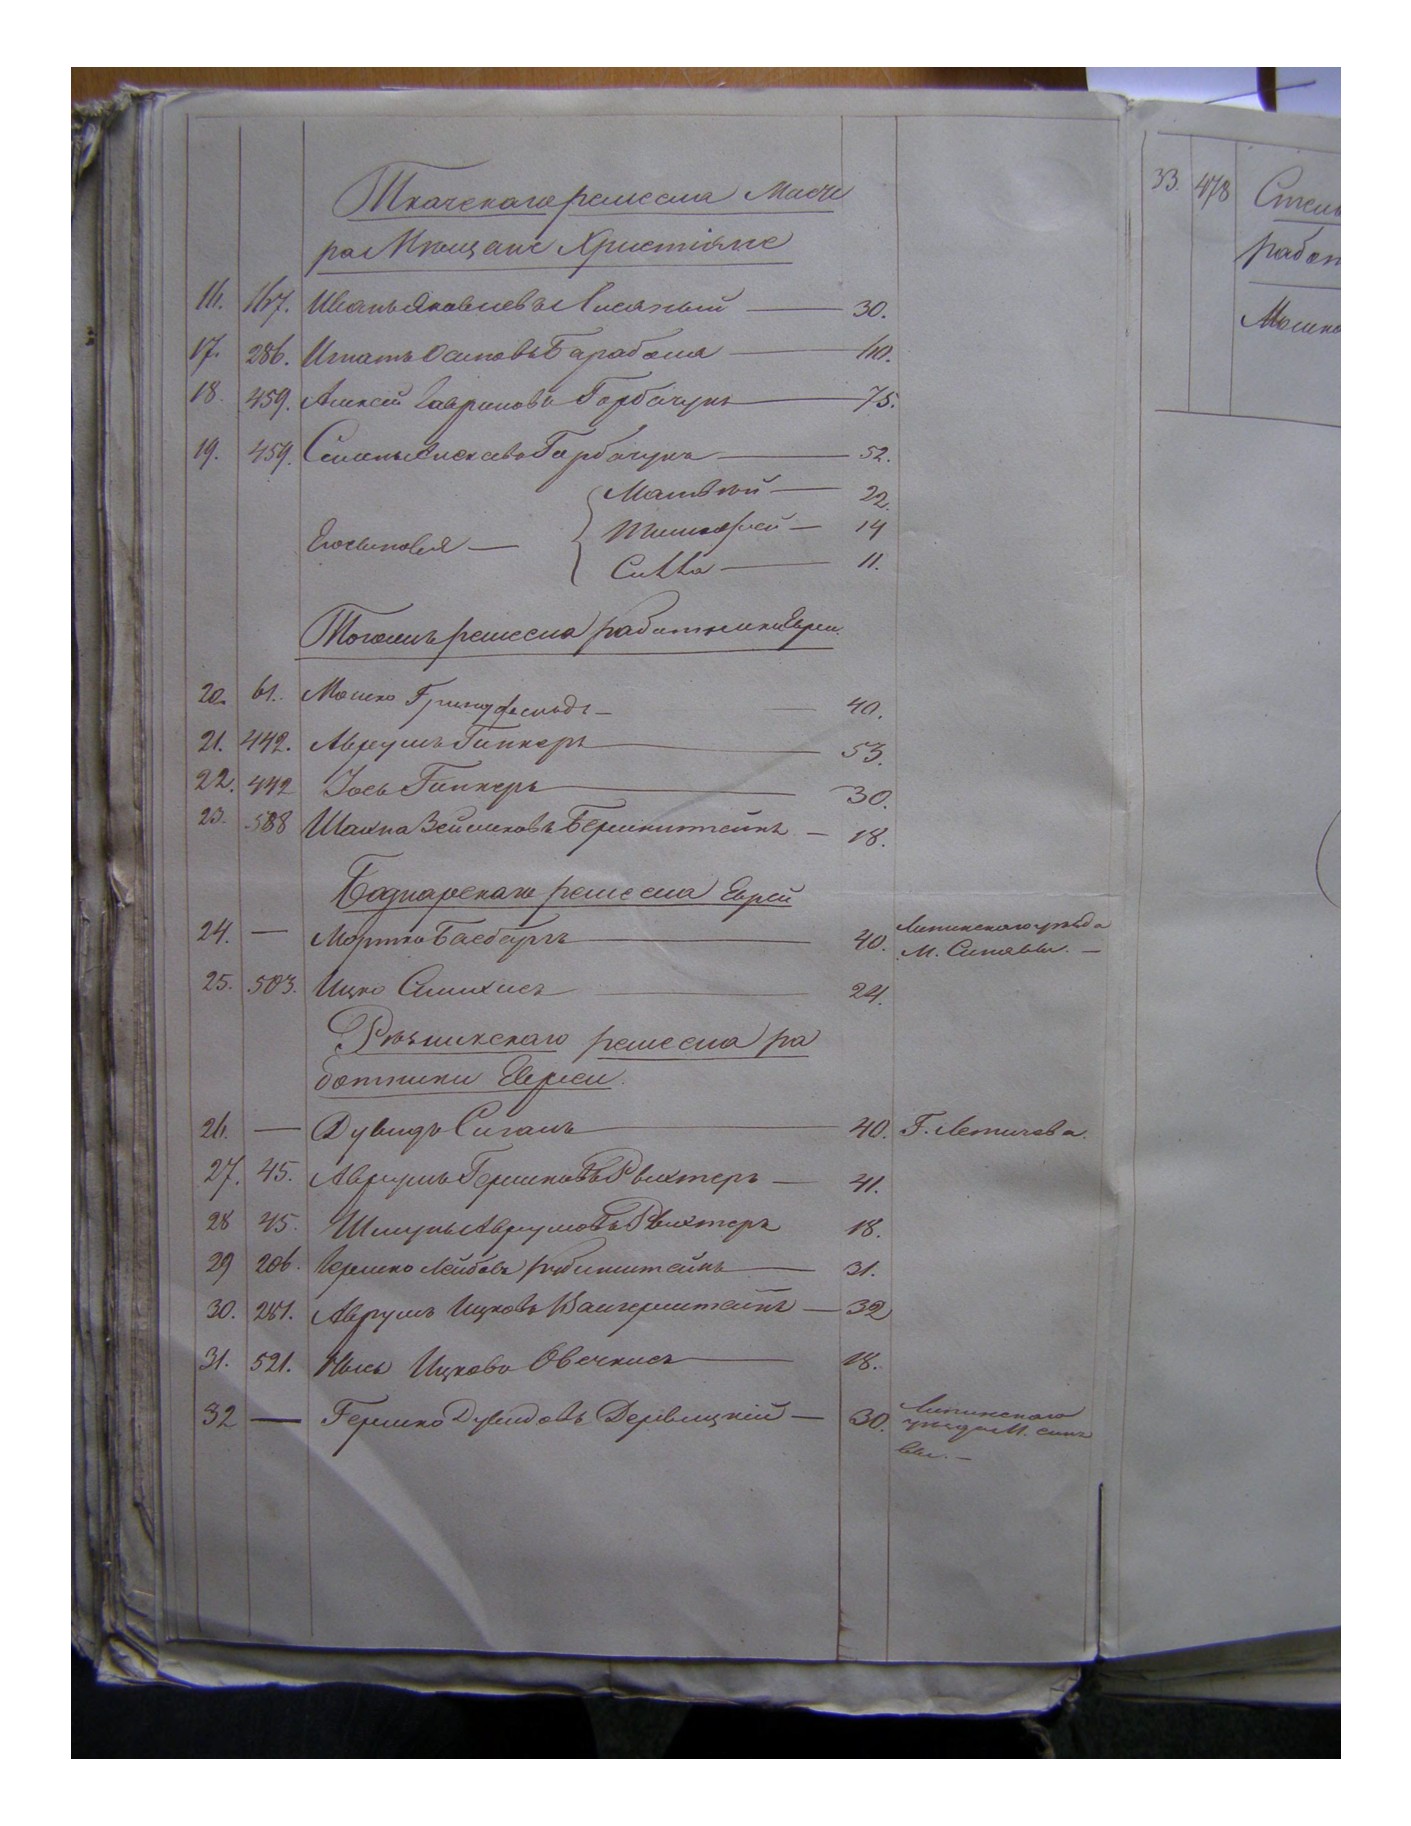 Ткачскаго ремесла Масте
ра Мѣщане Христіяне
16. 167. Иванъ Яковлевъ Лисягный — 30.
17. 286. Игнатъ Осиповъ Барабаша — 40.
18. 459. Алексей Гавриловъ Горбачукъ — 75.
19. 459. Семенъ Алексевъ Горбачукъ — 52.
Матвѣй — 22.
Сыновья — Тимофей — 14
Савва — 11.
Тогожъ ремесла работники Евреи.
20. 61. Мошко Гринфельдъ — 40.
21. 442. Аврумъ Гипкеръ — 53.
22. 442 Іось Гипкеръ — 30.
23. 588 Шахна Зейликовъ Бернштейнъ — 18.
Боднарскаго ремесла Еврей
24. — Мортко Басбаргъ — 40. Литинскаго уезда
М. Синявы. —
25. 503. Ицко — 24.
Рѣзницкаго ремесла ра
ботники Евреи.
26. — Дувидъ Сигалъ — 40. Г. Летичева.
27. 45. Аврумъ Гершковъ Рыхтеръ — 41.
28 45. Шмуль Аврумовъ Рыхтеръ 18.
29 206. Гершко Лейбовъ Рубинштейнъ — 31.
30. 281. Аврумъ Ицковъ Вангерштейнъ — 32
31. 521. Ицковъ Овечкисъ — 18.
32 — Гершко Дувидовъ Деревицкій — 30. Литинскаго
уезда М. синя
вы. —
33. 478
работ
Мошко